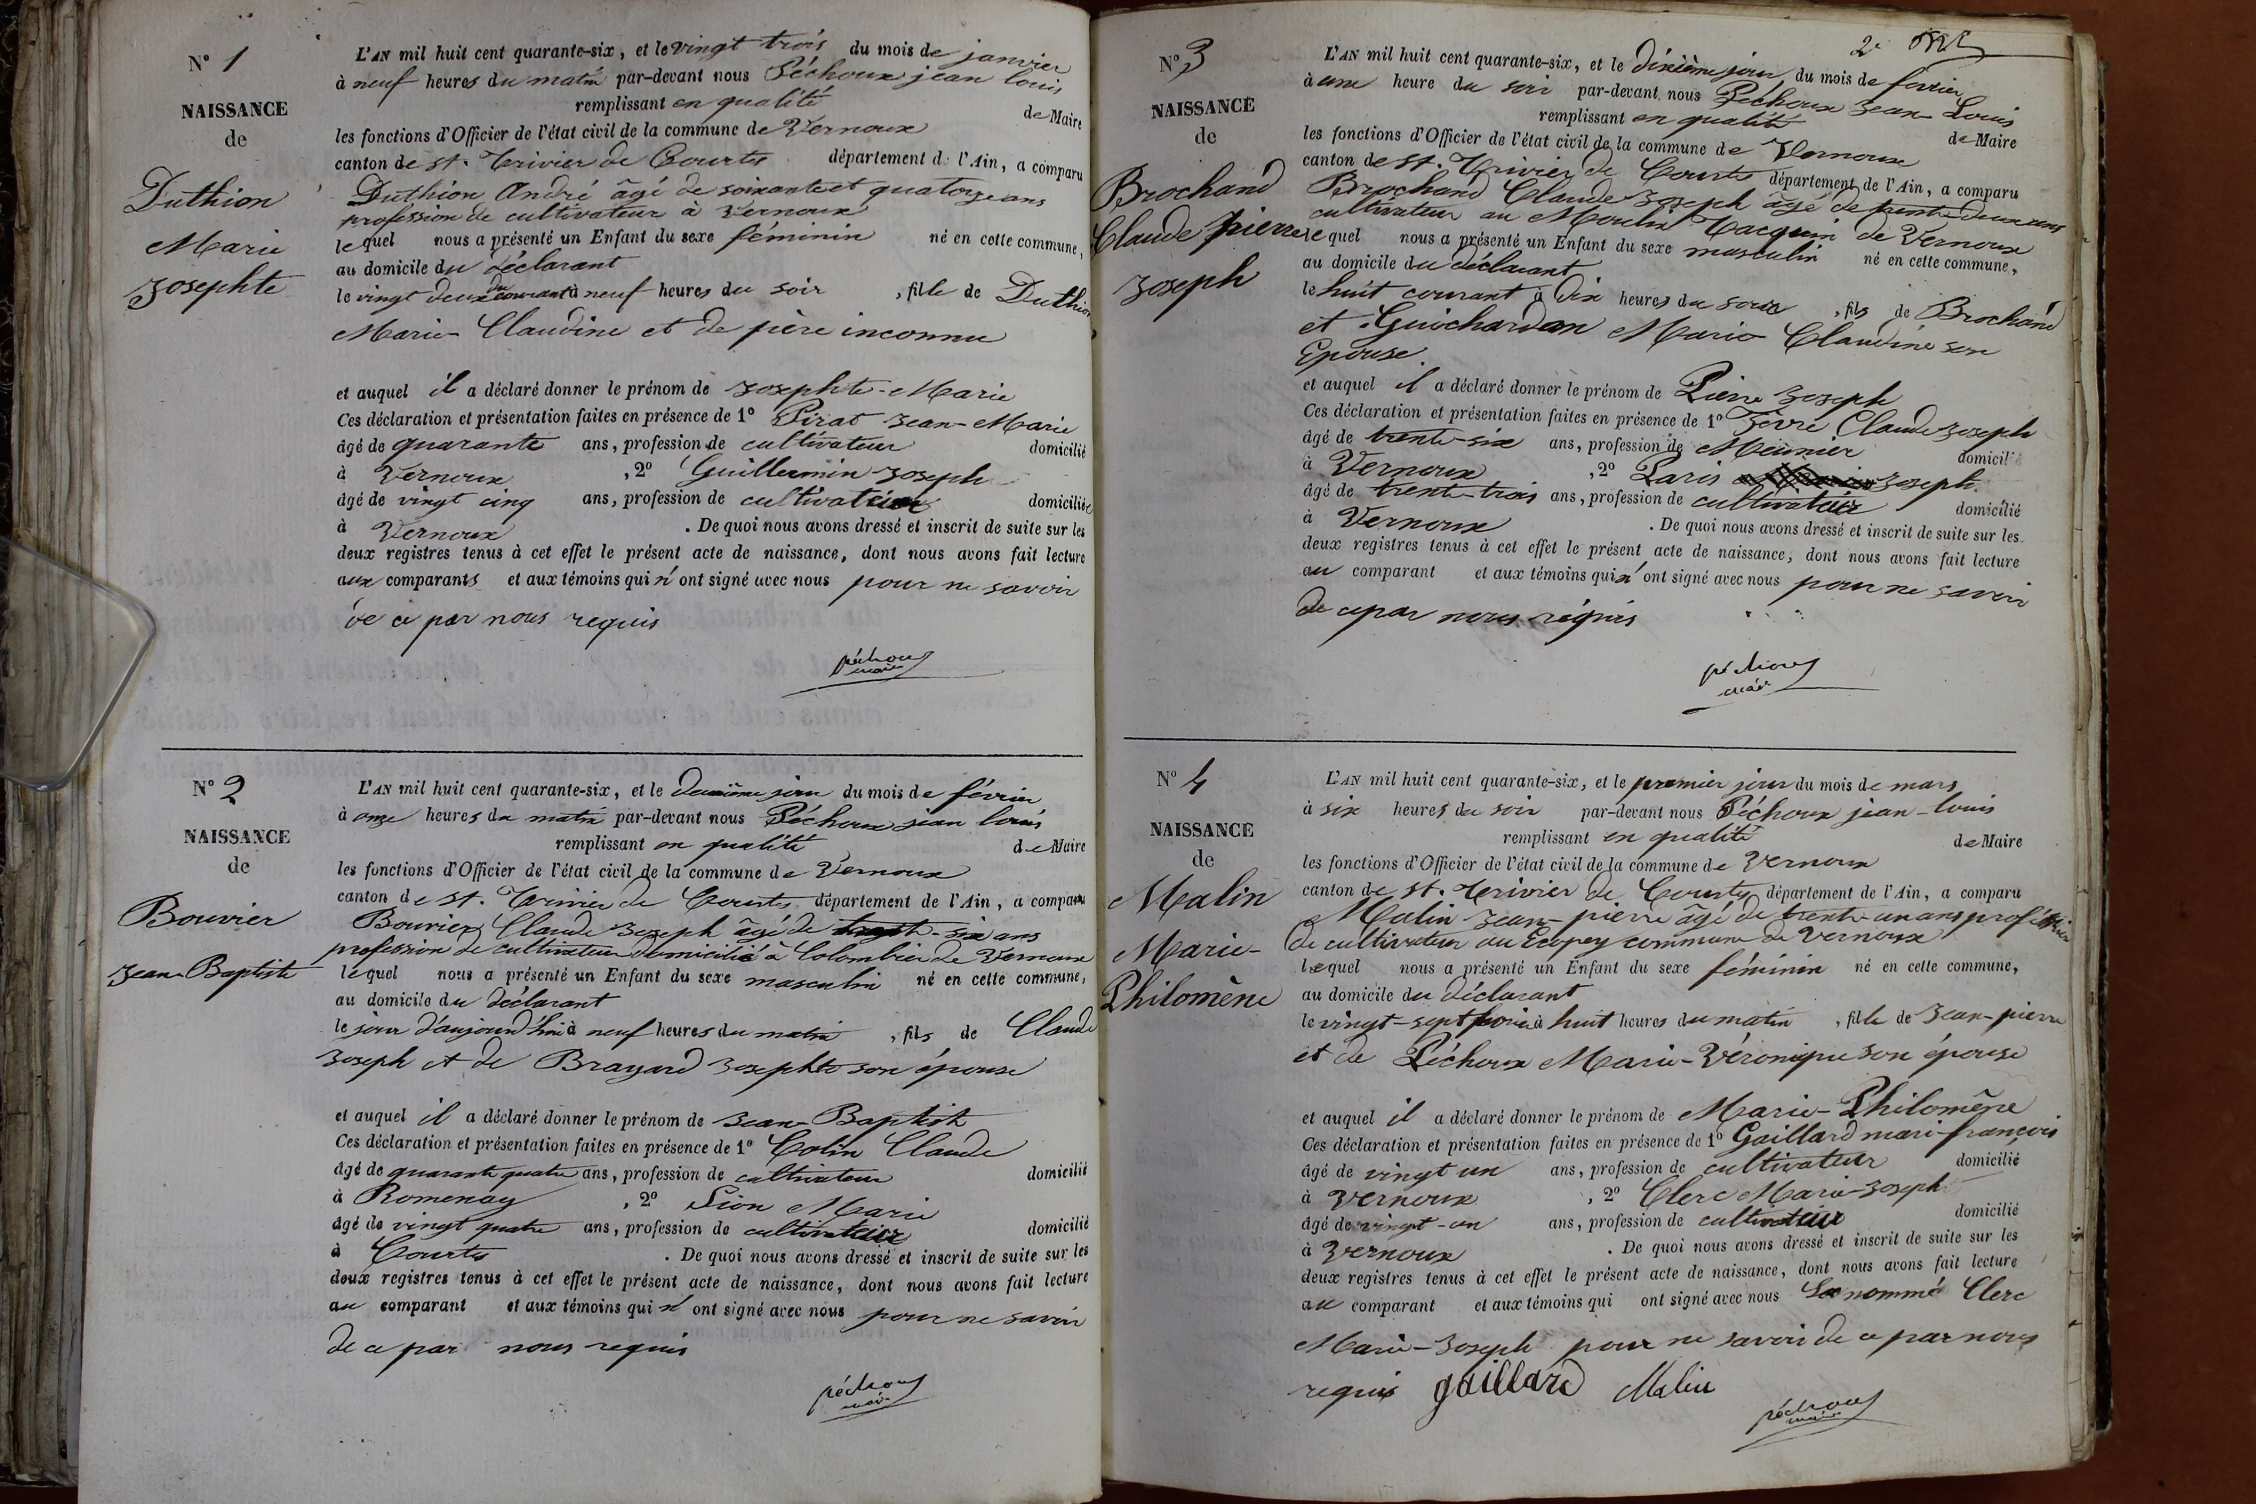 N° 1
NAISSANCE
de
Duthion
Marie
Josephte
L'AN mil huit cent quarante-six, et le vingt trois du mois de janvier
à neuf heures du matin par-devant nous Péchoux jean louis
remplissant en qualité de Maire
les fonctions d'Officier de l'état civil de la commune de Vernoux
canton de St. Trivier de Courtes département de l'Ain, a comparu
Duthion André âgé de soixante et quatorze ans
profession de cultivateur à Vernoux
lequel nous a présenté un Enfant du sexe féminin né en cette commune,
au domicile du déclarant
le vingt deux du courant à neuf heures du soir, fille de Duthion
Marie Claudine et de père inconnu
et auquel il a déclaré donner le prénom de Josephte-Marie
Ces déclaration et présentation faites en présence de 1° Pirat Jean-Marie
âgé de quarante ans, profession de cultivateur domicilié
à Vernoux, 2° Guillermin Joseph
âgé de vingt cinq ans, profession de cultivateur domicilié
à Vernoux. De quoi nous avons dressé et inscrit de suite sur les
deux registres tenus à cet effet le présent acte de naissance, dont nous avons fait lecture
aux comparants et aux témoins qui n'ont signé avec nous pour ne savoir
de ce par nous requis
péchoux
maire
N° 2
NAISSANCE
de
Bouvier
Jean-Baptiste
L'AN mil huit cent quarante-six, et le deuxième jour du mois de février
à onze heures du matin par-devant nous Péchoux jean louis
remplissant en qualité de Maire
les fonctions d'Officier de l'état civil de la commune de Vernoux
canton de St. Trivier de Courtes département de l'Ain, a comparu
Bouvier Claude Joseph âgé de trente-six ans
profession de cultivateur domicilié à Colombier de Vernoux
lequel nous a présenté un Enfant du sexe masculin né en cette commune,
au domicile du déclarant
le jour d'aujourd'hui à neuf heures du matin, fils de Claude
Joseph et de Brayard Josephte son épouse
et auquel il a déclaré donner le prénom de Jean-Baptiste
Ces déclaration et présentation faites en présence de 1° Colin Claude
âgé de quarante quatre ans, profession de cultivateur domicilié
à Romenay, 2° Lion Marie
âgé de vingt quatre ans, profession de cultivateur domicilié
à Courtes. De quoi nous avons dressé et inscrit de suite sur les
deux registres tenus à cet effet le présent acte de naissance, dont nous avons fait lecture
au comparant et aux témoins qui n'ont signé avec nous pour ne savoir
de ce par nous requis
péchoux
maire
2e
N° 3
NAISSANCE
de
Brochand
Claude pierre
Joseph
L'AN mil huit cent quarante-six, et le dixième jour du mois de février
à une heure du soir par-devant nous Péchoux Jean-Louis
remplissant en qualité de Maire
les fonctions d'Officier de l'état civil de la commune de Vernoux
canton de St. Trivier de Courtes département de l'Ain, a comparu
Brochand Claude Joseph âgé de trente deux ans
cultivateur au Moulin Tacquin de Vernoux
lequel nous a présenté un Enfant du sexe masculin né en cette commune,
au domicile du déclarant
le huit courant à dix heures du soir, fils de Brochand
et Guichardan Marie Claudine son
Epouse
et auquel il a déclaré donner le prénom de Pierre Joseph
Ces déclaration et présentation faites en présence de 1° Fèvre Claude Joseph
âgé de trente-six ans, profession de Meunier domicilié
à Vernoux, 2° Paris Joseph
âgé de trente-trois ans, profession de cultivateur domicilié
à Vernoux. De quoi nous avons dressé et inscrit de suite sur les
deux registres tenus à cet effet le présent acte de naissance, dont nous avons fait lecture
au comparant et aux témoins qui n'ont signé avec nous pour ne savoir
de ce par nous requis
péchoux
maire
N° 4
NAISSANCE
de
Malin
Marie-
Philomène
L'AN mil huit cent quarante-six, et le premier jour du mois de mars
à six heures du soir par-devant nous Péchoux jean-louis
remplissant en qualité de Maire
les fonctions d'Officier de l'état civil de la commune de Vernoux
canton de St. Trivier de Courtes département de l'Ain, a comparu
Malin Jean-pierre âgé de trente un ans profession
de cultivateur au Ecopey commune de Vernoux
lequel nous a présenté un Enfant du sexe féminin né en cette commune,
au domicile du déclarant
le vingt-sept à huit heures du matin, fille de Jean-pierre
et de Péchoux Marie-Véronique son épouse
et auquel il a déclaré donner le prénom de Marie-Philomène
Ces déclaration et présentation faites en présence de 1° Gaillard mari-françois
âgé de vingt un ans, profession de cultivateur domicilié
à Vernoux, 2° Clerc Marie-Joseph
âgé de vingt-un ans, profession de cultivateur domicilié
à Vernoux. De quoi nous avons dressé et inscrit de suite sur les
deux registres tenus à cet effet le présent acte de naissance, dont nous avons fait lecture
au comparant et aux témoins qui ont signé avec nous Le nommé Clerc
Marie-Joseph pour ne savoir de ce par nous
requis gaillard Malin
péchoux
maire